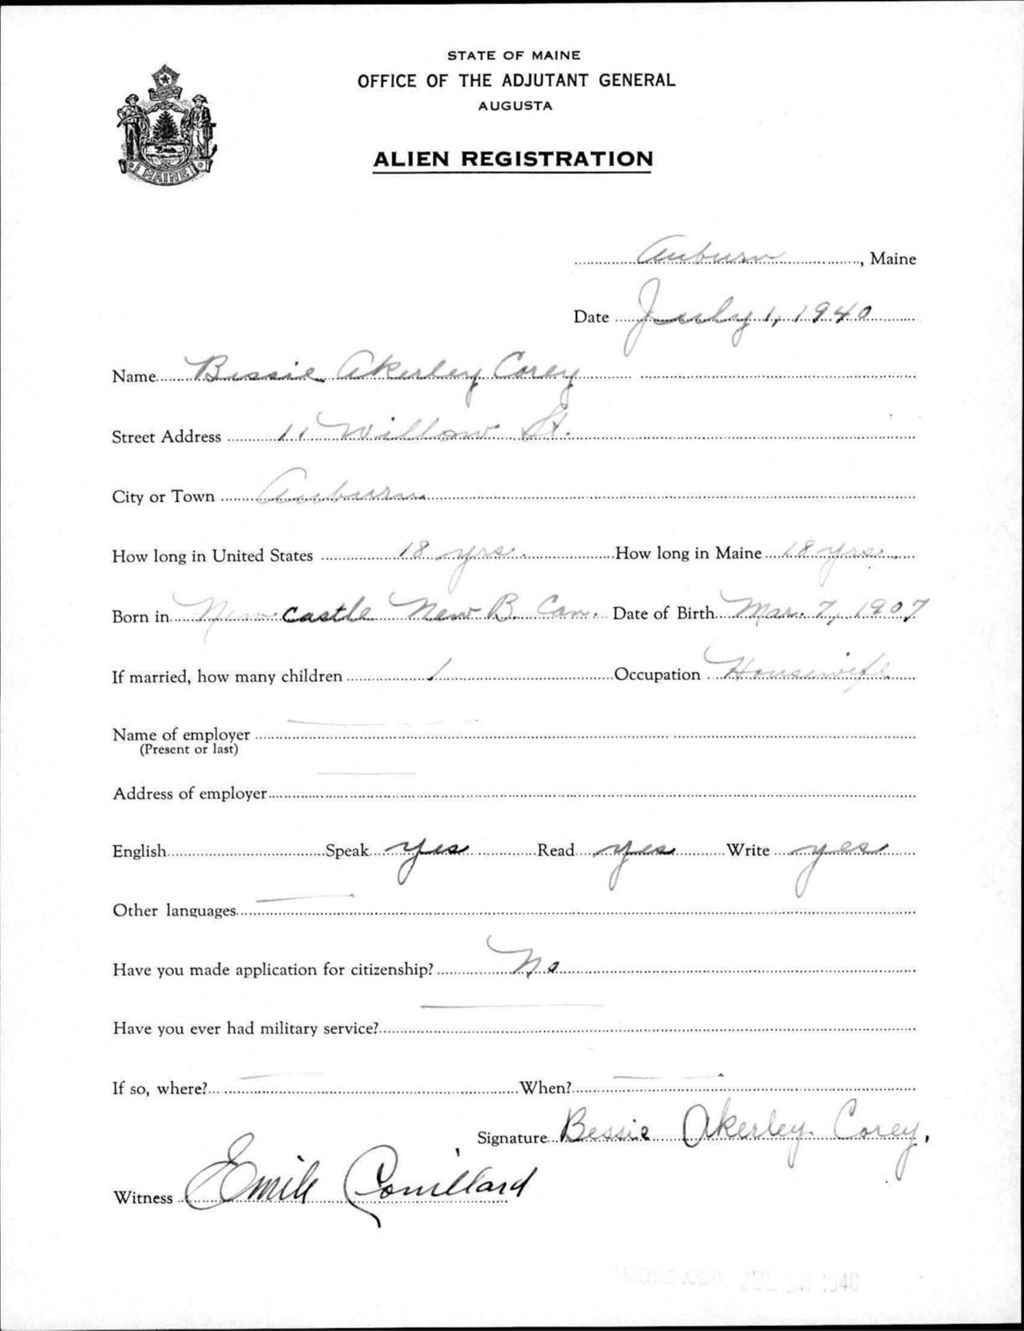 STATE OF MAINE
OFFICE OF THE ADJUTANT GENERAL
AUGUSTA
ALIEN REGISTRATION
MAINE
Auburn, Maine
Date July 1, 1940
Name Bessie Akerley Corey
Street Address 11 Willow St.
City or Town Auburn
How long in United States 18 yrs. How long in Maine 18 yrs.
Born in New castle New B. Can. Date of Birth Mar. 7, 1907
If married, how many children 1 Occupation Housewife
Name of employer
(Present or last)
Address of employer
English Speak yes Read yes Write yes
Other languages
Have you made application for citizenship? No
Have you ever had military service?
If so, where? When?
Signature Bessie Akerley Corey.
Witness Emile Couillard
1940